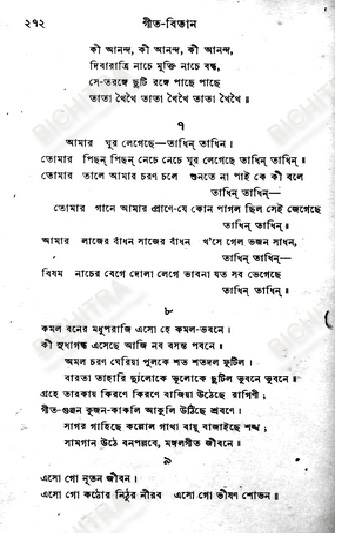 ২৭২ গীত-বিতান
কী আনন্দ, কী আনন্দ, কী আনন্দ,
দিবারাত্রি নাচে মুক্তি নাচে বন্ধ,
সে-তরঙ্গে ছুটি রঙ্গে পাছে পাছে
তাতা থৈথৈ তাতা থৈথৈ তাতা থৈথৈ ।
৭
আমার ঘুর লেগেছে—তাধিন্ তাধিন্ ।
তোমার পিছন্ পিছন্ নেচে নেচে ঘুর লেগেছে তাধিন্ তাধিন্ ।
তোমার তালে আমার চরণ চলে শুনতে না পাই কে কী বলে
তাধিন্ তাধিন্—
তোমার গানে আমার প্রাণে-যে কোন পাগল ছিল সেই জেগেছে
তাধিন্ তাধিন্ ।
আমার লাজের বাঁধন সাজের বাঁধন খ'সে গেল ভজন সাধন,
তাধিন্ তাধিন্—
বিষম নাচের বেগে দোলা লেগে ভাবনা যত সব ভেগেছে
তাধিন্ তাধিন্ ।
৮
কমল বনের মধুপরাজি এসো হে কমল-ভবনে ।
কী সুধাগন্ধ এসেছে আজি নব বসন্ত পবনে ।
অমল চরণ ঘেরিয়া পুলকে শত শতদল ফুটিল ।
বারতা তাহারি দ্যুলোকে ভূলোকে ছুটিল ভুবনে ভুবনে ।
গ্রহে তারকায় কিরণে কিরণে বাজিয়া উঠেছে রাগিণী ;
গীত-গুঞ্জন কূজন-কাকলি আকুলি উঠিছে শ্রবণে ।
সাগর গাহিছে কল্লোল গাথা বায়ু বাজাইছে শঙ্খ ;
সামগান উঠে বনপল্লবে, মঙ্গলগীত জীবনে ॥
৯
এসো গো নূতন জীবন ।
এসো গো কঠোর নিঠুর নীরব এসো গো ভীষণ শোভন ॥
BICHITRA